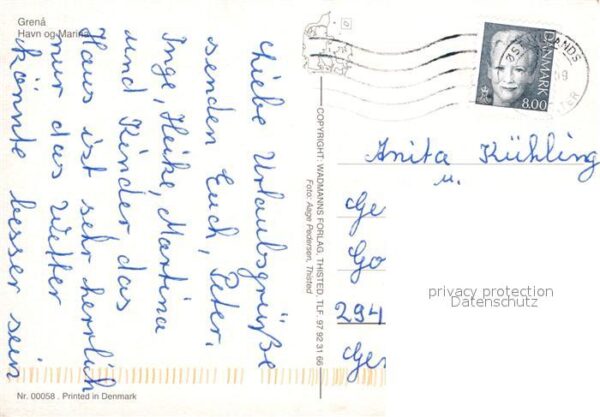 Grenå
Havn og Marina
Liebe Urlaubsgrüße
senden Euch, Peter,
Inge, Heike, Martina
und Kinder das
Haus ist sehr herrlich
nur das Wetter
könnte besser sein
Nr. 00058 . Printed in Denmark
COPYRIGHT: WADMANNS FORLAG, THISTED, TLF. 97 92 31 66
Foto: Aage Pedersen, Thisted
LANDS
DANMARK
8.00
Anita Kühling
u.
Ge
Go
294
Ge
privacy protection
Datenschutz